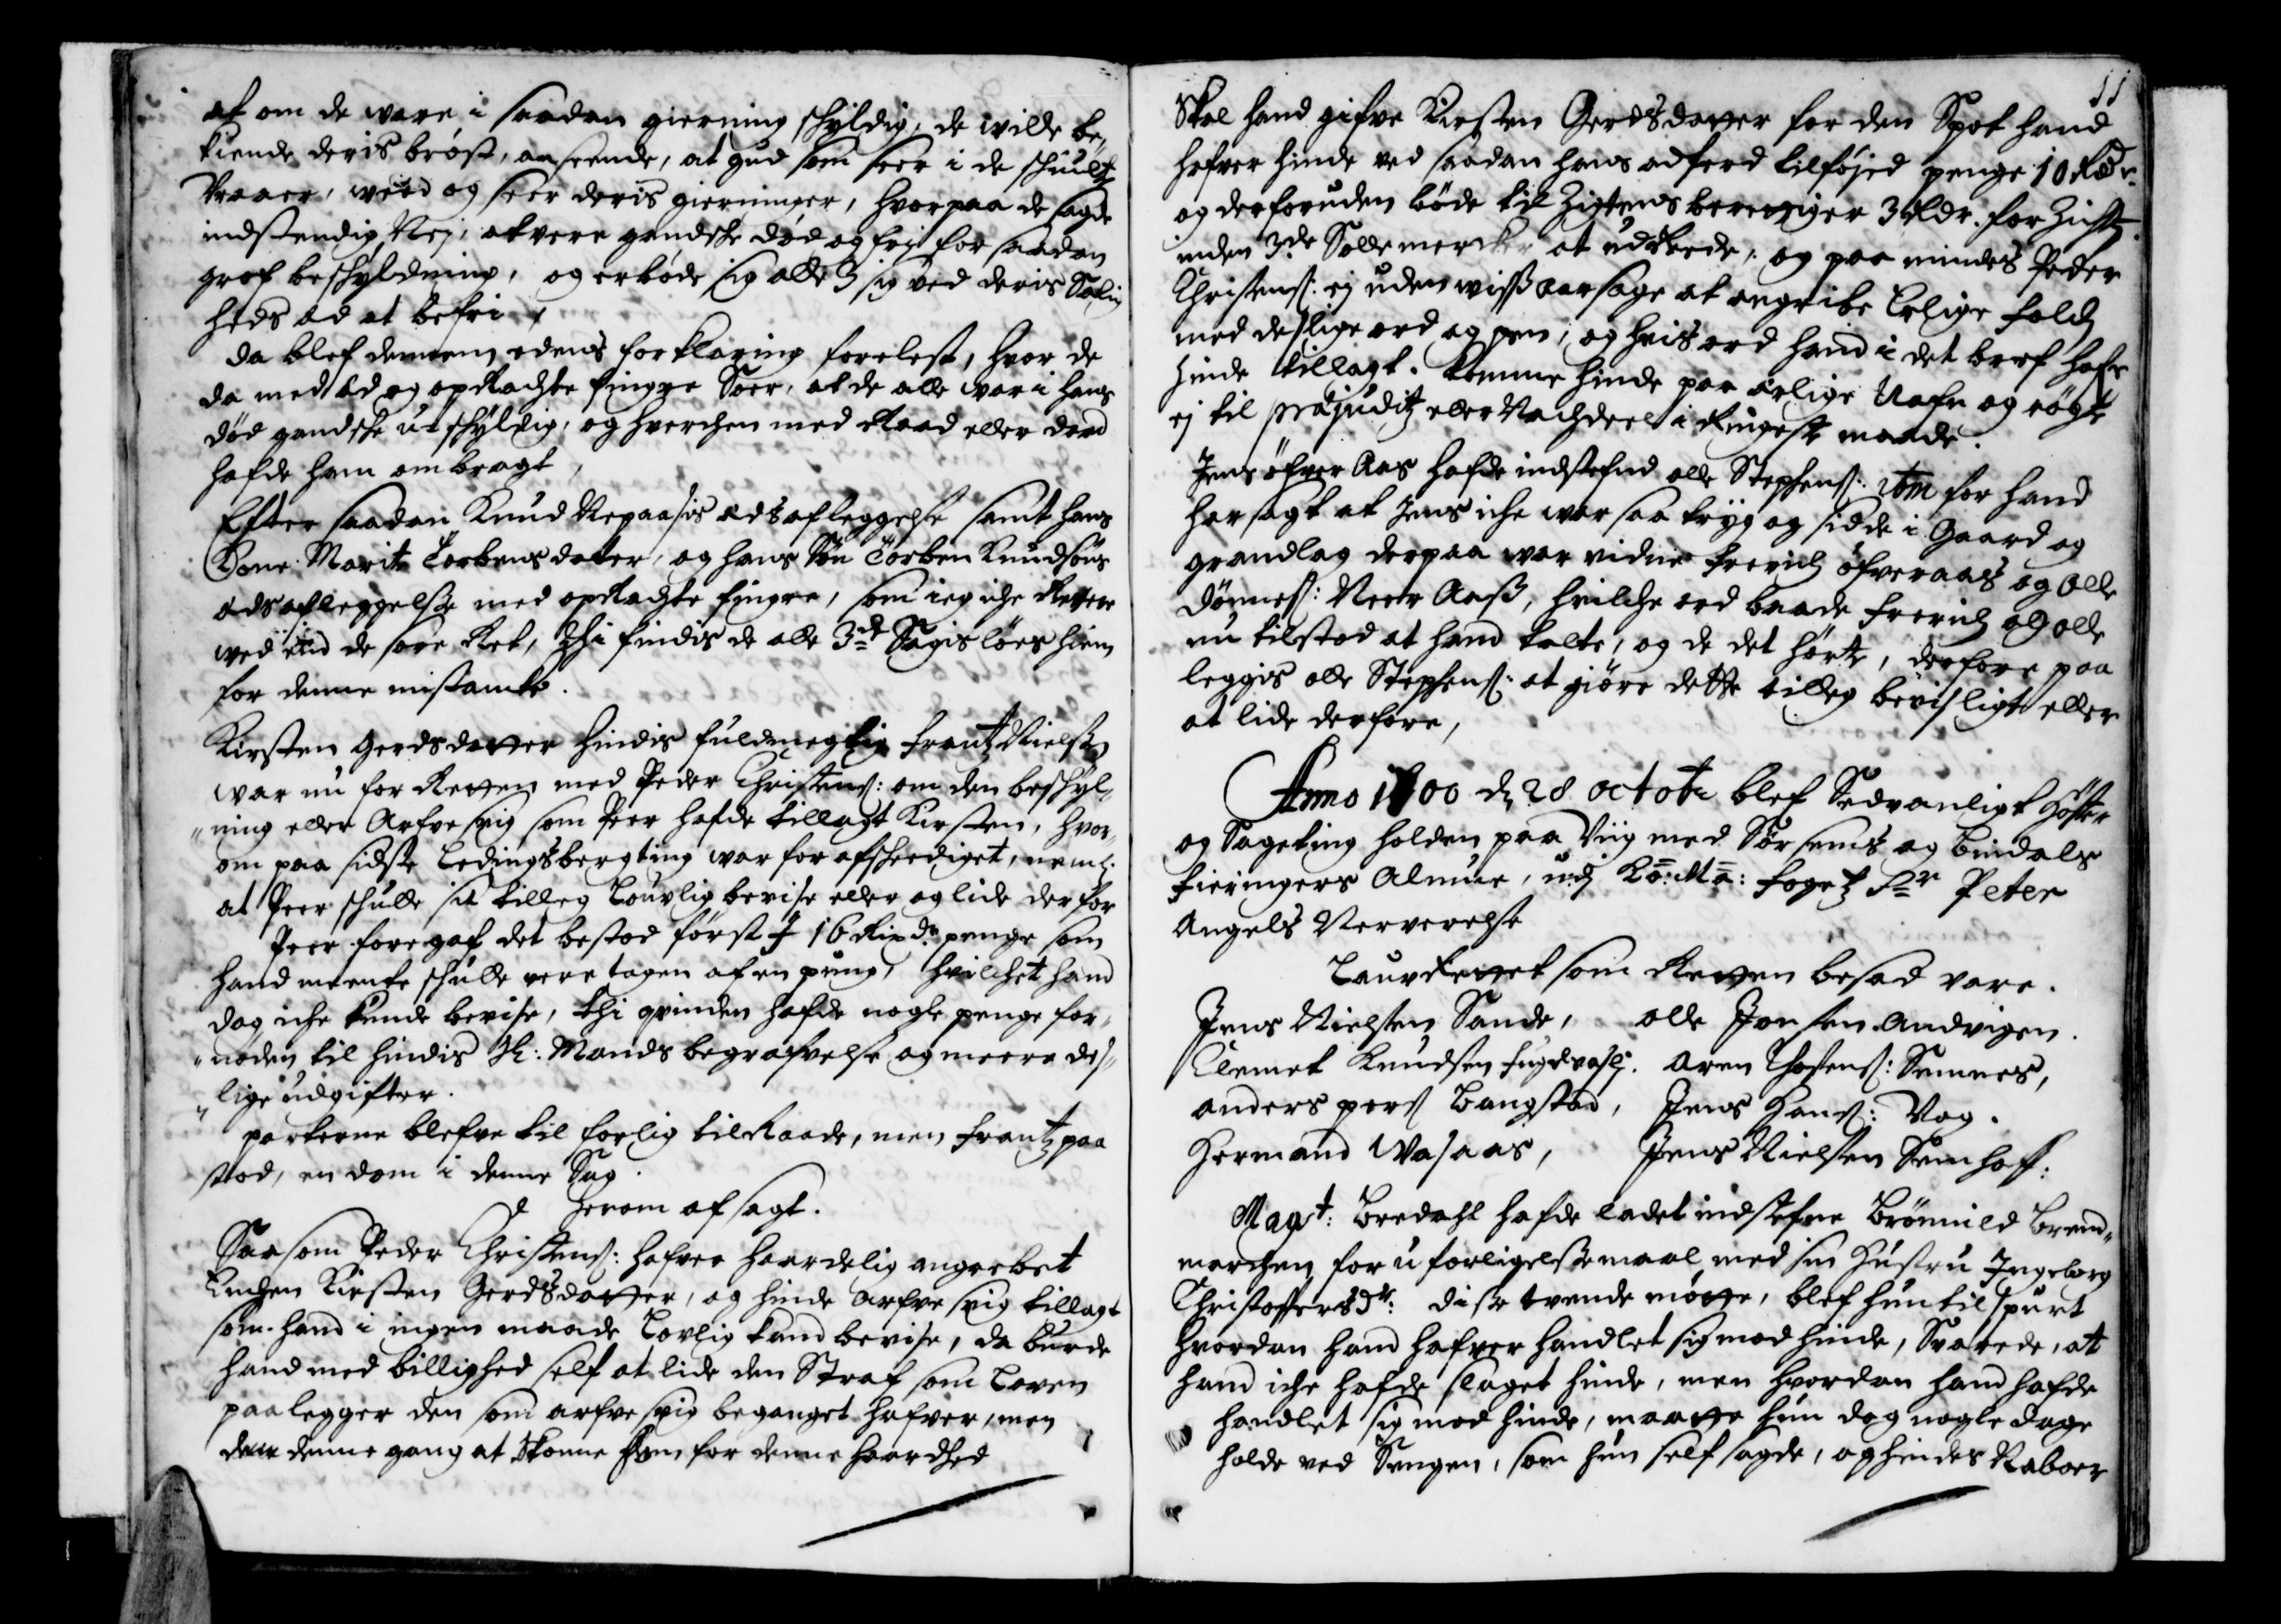 at om de ware i saadan gierning schyldig, de wilde be-
kiende deris bröst, anseende, at gud som seer i de schiulte
Vraaer, weed og seer deris gierninger, hvorpaa de sagde
indstendig Nej, at vere gandsche död og frj for saadan
grof beschyldning, og erböde sig alle 3 sig ved deris Salig
heds æd at befri,
da blef dennem edens forklaring forelest, hvor de
da med æd og oprachte fingre Soer, at de alle var i hans
död gandsche u-schyldig, og hverchen med Raad eller daad
hafde ham ombragt,
Efter saadan Knud Repaasis æds afleggelse samt hans
Kone Marite Torbens datter, og hans Sön Torben Knudsöns
æds afleggelse med oprachte fingre, som ieg iche Rettere
wed end de sore Ret, Thi findis de alle 3de Sagislöes hiem
for denne mistanke.
Kirsten Gerdsdatter hindis fuldmegtig Frantz Nielsen
war nu for Retten med Peder Christens: om den beschyl-
"ning eller Arfve svig som Peer hafde tillagt Kirsten, hvor-
om paa sidste Ledingsbergting war for afscheediget, neml:
at Peer schulde sit tilleg Louvlig bevise eller og lide derfor
Peer foregaf det bestod först I 16 Rixdr penge som
hand meente schulde vere tagen af en pung, hvilchet hand
dog iche kunde bevise, thi qvinden hafde nogle penge for-
"nöden til hindis Sl: Mands begrafvelse og meere des-
"lige udgifter.
parterne blefve til forlig tilRaade, men Frantz paa
stod, en dom i denne Sag.
Herom afsagt.
Saasom Peder Christens: hafver haardelig angrebet
Enchen Kirsten Gerdsdatter, og hinde Arfve svig tillagt
som hand i ingen maade Lovlig kand bevise, da burde
hand med billighed self at lide den Straf som Loven
paalegger den som arfve svig beganget hafver, men
denne gang at Skonne ham for denne haardhed
11
Skal hand gifve Kirsten Gerdsdatter for den Spot hand
hafver hinde ved saadan hans adferd tilföjed penge 10 Rdr.
og desforuden böde til Zigtens berettiger 3 Rdr. for Zigt
inden 3de Solle mercker at udReede, og paa mindes Peder
Christens: ej uden wiss aarsage at angribe Erlige folch
med deslige ord og pen, og hvis ord hand i det bref hafr
hinde tillagt. komme hinde paa ærlige Nafn og rögte
ej til præjuditz eller Nachdeel i Ringeste maade.
Jens öfver Aas hafde indstefnd olle Stephens: Tom for hand
har sagt at Jens iche war saa tryg og sidde i Gaard og
grandlag derpaa war vidne Frerich öfveraas og olle
Dönnes: Neer Aass, hvilche ord baade Frerich og olle
nu tilstod at hand talte, og de det hörte, derfore paa
leggis olle Stephens: at giöre dette tilleg bevisligt eller
at lide derfore,
Anno 1700 d 28 octobr blef Sedvanligt Höste
og Sageting holden paa Viig med Sör sems og Bindals
fieringers Almue, udj Ko: Ma: foget Sr Peter
Angels Nerverelse
Laurettet som Retten besad vare.
Jens Nielsen Sande, olle Jonsen Andvigen.
Clemet Knudsen fugelvasli. Aren Thostens: Semnes,
anders pers Bangstad, Jens Hans: Vog.
Hermand Wasaas, Jens Nielsen Semhoff:
Magt: Bredahl hafde ladet indstefne Brönnild Brend-
marchen for uforligelsemaal med sin Hustru Ingeborg
Christoffersdr: disse tvende mötte, blef hun tilspurt
hvordan hand hafver handlet sig mod hinde, Svarede, at
hand iche hafde slaget hinde, men hvordan hand hafde
handlet sig mod hinde, maatte hun dog nogle dage
holde ved Sengen, som hun self sagde, og hindes Naboer